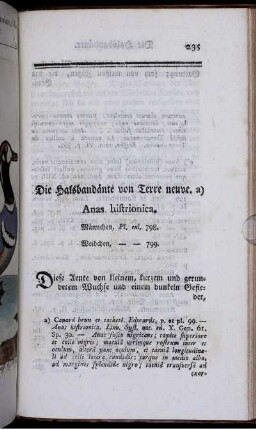 235
Die Halsbandänte von Terre neuve. a)
Anas histrionica.
Männchen, Pl. enl. 798.
Weibchen, — — 799.
Diese Aente von kleinem, kurzem und gerun-
detem Wuchse und einem dunkeln Gefie-
der,
a) Canard brun et tacheté. Edwards, p. et pl. 99. —
Anas histrionica. Linn. Syst. nat. ed. X. Gen. 61.
Sp. 30. — Anas fusco nigricans; capite superiore
et collo nigris; macula utrinque rostrum inter et
oculum, altera pone oculum, et taenia longitudina-
li ad colli latera candidis; torque in medio albo,
ad margines splendide nigro; taenia transversa ad
(exor-